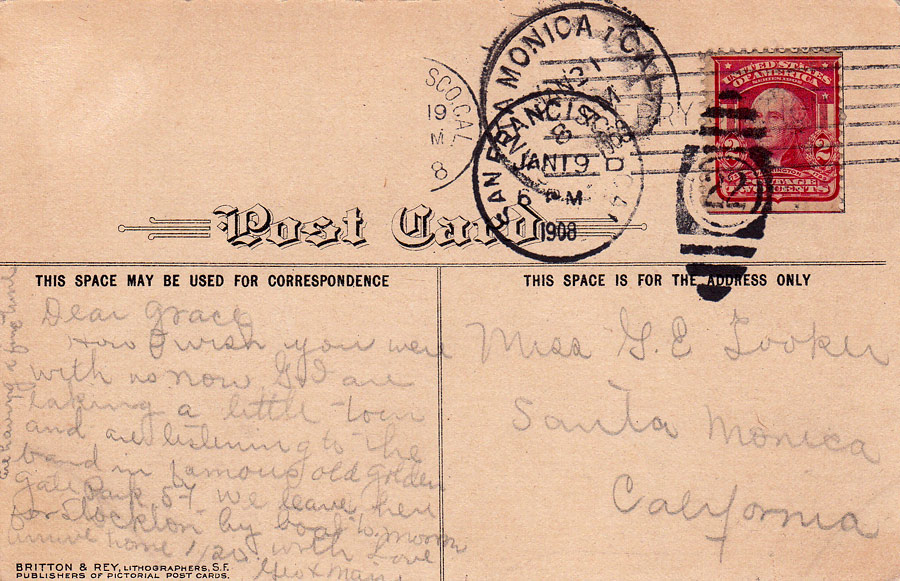 SANTA MONICA, CAL.
JAN 21
SCO, CAL.
19
M
8
SAN FRANCISCO, CAL.
JAN 19
6 PM
1908
D
RY
UNITED STATES
OF AMERICA
SERIES 1902
2 2
POSTAGE
TWO CENTS
22
Post Card
THIS SPACE MAY BE USED FOR CORRESPONDENCE
THIS SPACE IS FOR THE ADDRESS ONLY
Dear Grace,
How I wish you were
with us now. G. & I are
taking a little tour
and are listening to the
band in famous old golden
gate Park. We leave here
for Stockton by boat to-morrow
arrive home 1/20 with Love
Geo &
are having a fine time
Miss G. E. Tooker
Santa Monica
California
BRITTON & REY, LITHOGRAPHERS, S.F.
PUBLISHERS OF PICTORIAL POST CARDS.